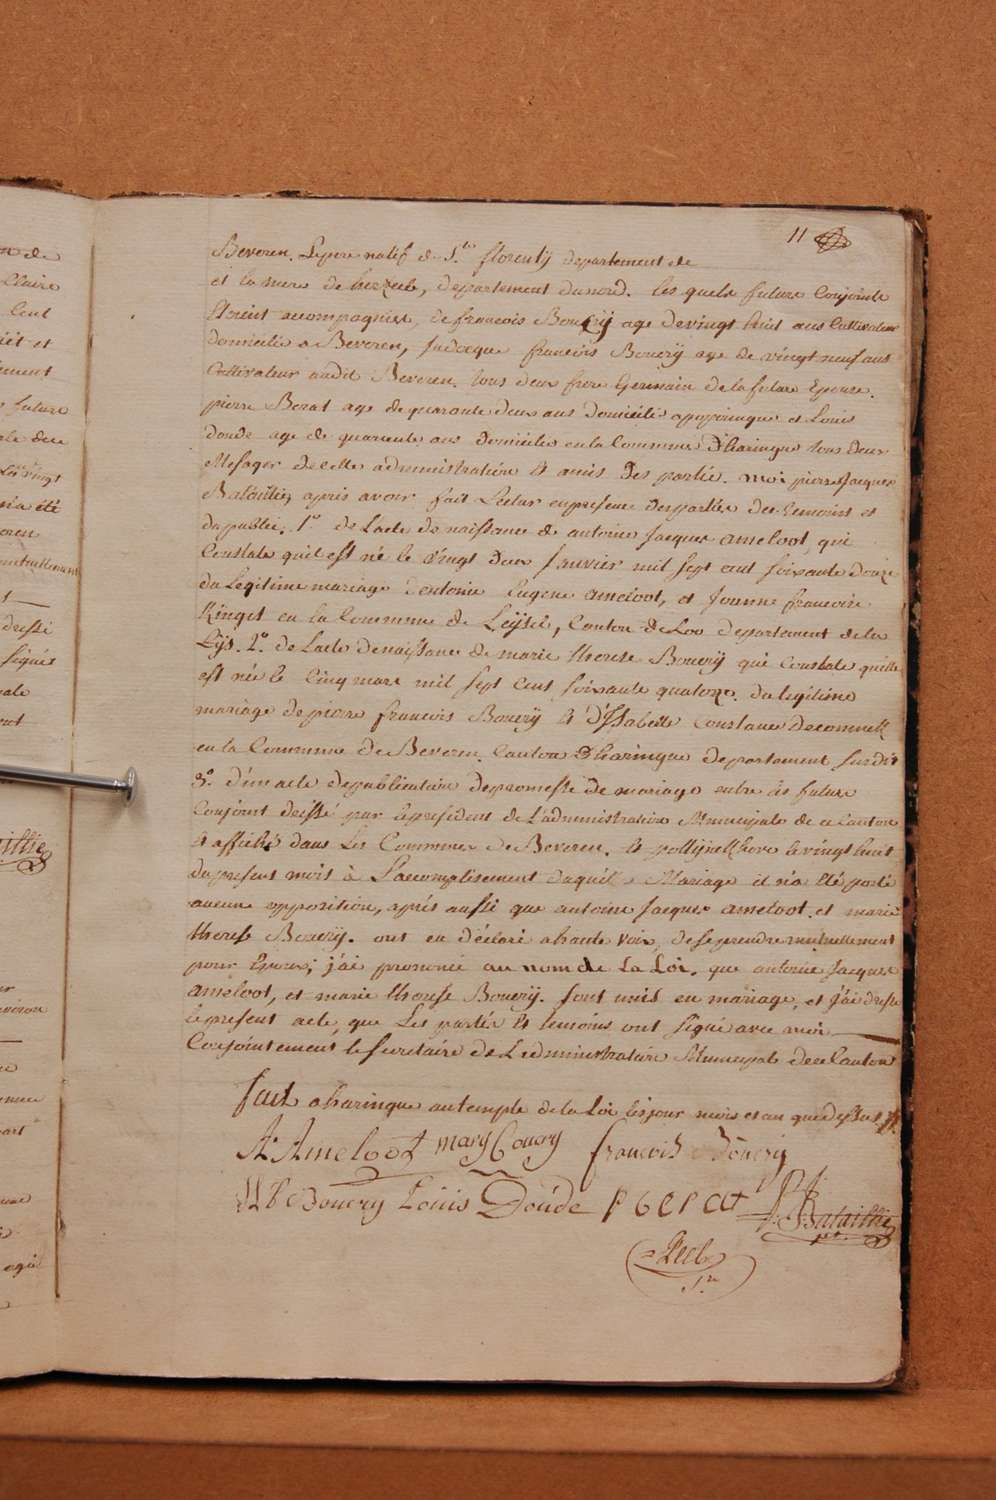 11
Beveren. Le pere natif de S.te florentij departement de
et la mere de herzeele, departement du nord. les quels future Conjointe
étoient accompagnier, de francois Bouery age de vingt huit ans Cultivateur
domicilié a Beveren, Judocque francois Bouery age de vingt neuf ans
Cultivateur audit Beveren. tous deux frere Germain de la future Epouse.
pierre Berat age de quarante deux ans domicilié a poperinque et Louis
doude age de quarente ans domicilié en la Commune d'haringue tous deux
Mesager de cette administration & amis des partie. moi pierre Jacques
Bataillie, apris avoir fait Lectur en presence des partiés des temoins et
du public. 1.o de Lacte de naissance de antoine Jacques ameloot, qui
Constate qu'il est né le vingt deux Janvier mil sept cent soixante douze
du Legitime mariage d'entoine Eugene ameloot, et Joanne francoise
Ringet en la Commune de Leysel, Canton de Loo departement de la
Lys. 2.o de Lacte de naissance de marie therese Bouery qui Constate qu'elle
est née le Cinq mars mil sept cent soixante quatorze. du legitime
mariage de pierre francois Bouery & d'Isabelle Constance
en la Commune de Beveren. Canton d'haringue departement susdit
3.o d'un acte de publication de promesse de mariage entre les future
Conjoint dressé par le president de L'administration Municipale de ce Canton
& affiché dans Les Commune de Beveren. & le vingt huit
du present mois à L'accomplisement duquelle Mariage il n'a été porté
aucune opposition, aprés aussi que antoine Jacques ameloot et marie
therese Bouery. ont eu déclaré a haute voix, de se prendre mutuellement
pour Epoux; j'ai prononcé au nom de La Loi. que antoine Jacques
ameloot, et marie therese Bouery. sont unis en mariage, et j'ai dressé
le present acte, que Les partiés & temoins ont signé avec moi
Conjointement le secretaire de L'administration Municipale de ce Canton
fait a haringue au temple de la Loi les jour mois et an que dessus
A: Ameloot mary Bouery francois Bouery
Bouery Louis Doude P berat P. J. Bataillie